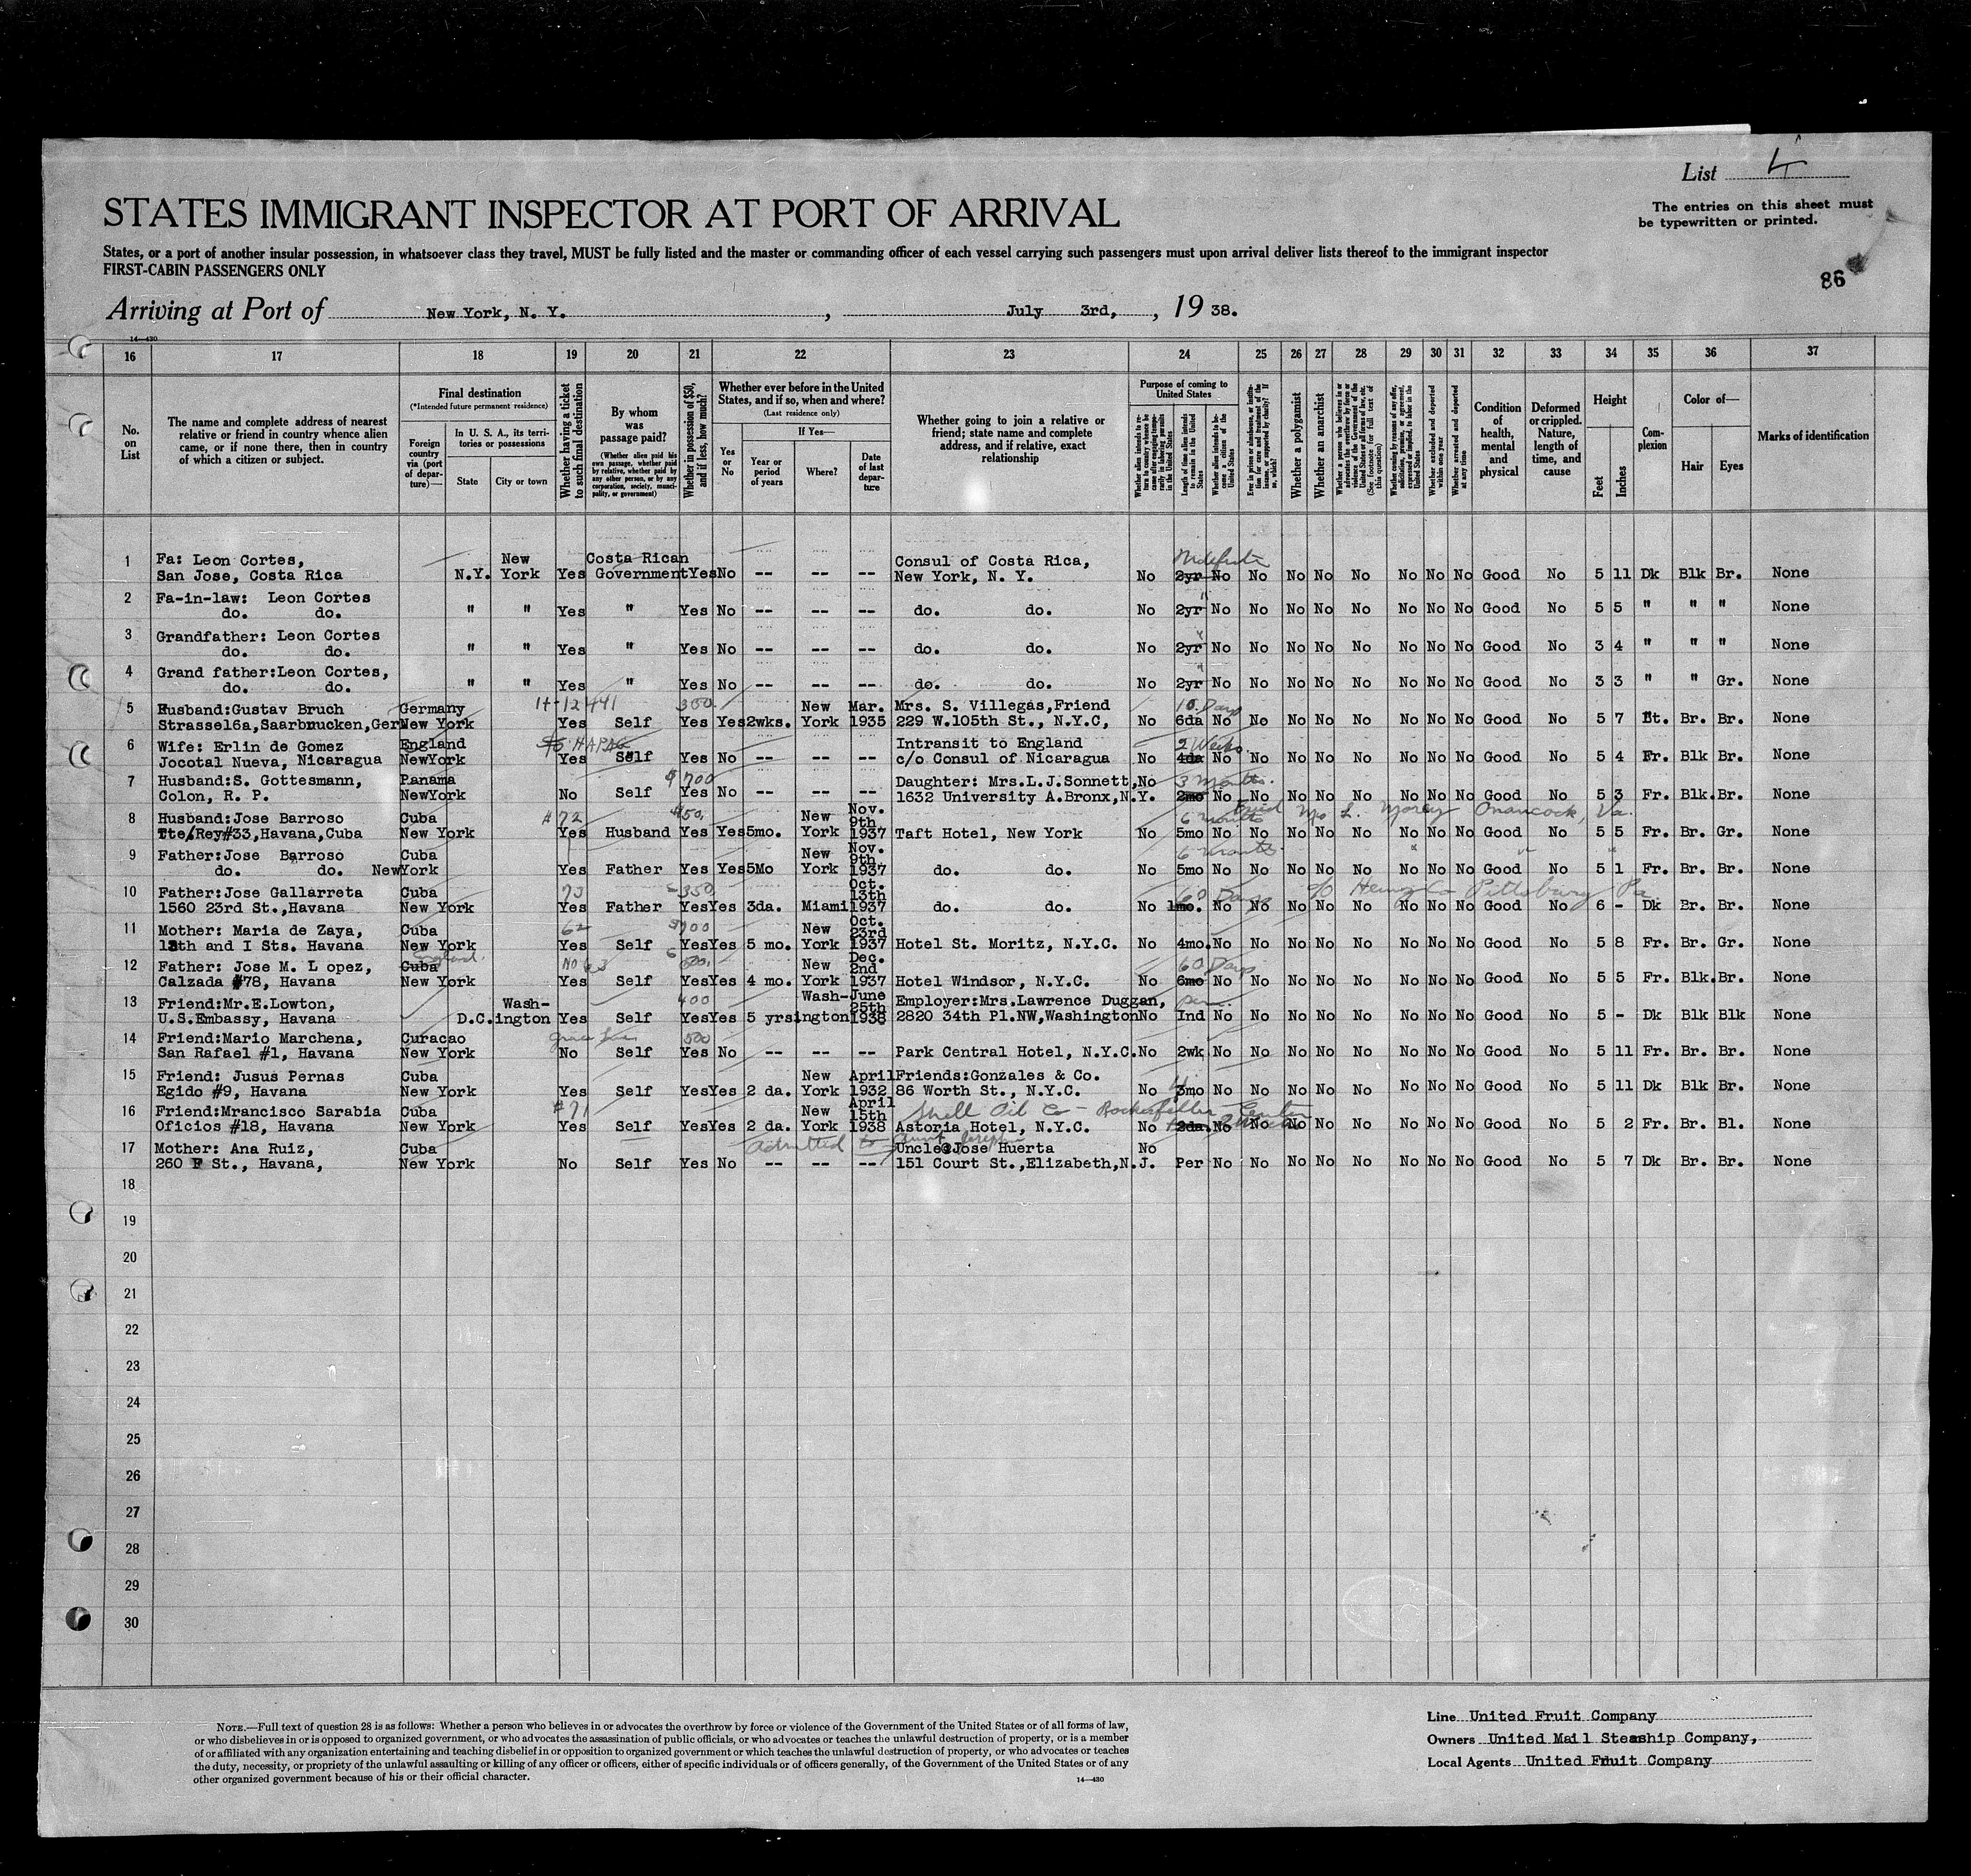 List 4
STATES IMMIGRANT INSPECTOR AT PORT OF ARRIVAL
The entries on this sheet must
be typewritten or printed.
States, or a port of another insular possession, in whatsoever class they travel, MUST be fully listed and the master or commanding officer of each vessel carrying such passengers must upon arrival deliver lists thereof to the immigrant inspector
FIRST-CABIN PASSENGERS ONLY
86
Arriving at Port of New York, N. Y. , July 3rd, , 19 38.
14—430
16 17 18 19 20 21 22 23 24 25 26 27 28 29 30 31 32 33 34 35 36 37
No. on List
The name and complete address of nearest relative or friend in country whence alien came, or if none there, then in country of which a citizen or subject.
Final destination
(*Intended future permanent residence)
Foreign country via (port of departure)—
In U. S. A., its territories or possessions
State
City or town
Whether having a ticket to such final destination
By whom was passage paid?
(Whether alien paid his own passage, whether paid by relative, whether paid by any other person, or by any corporation, society, municipality, or government)
Whether in possession of $50, and if less, how much?
Whether ever before in the United States, and if so, when and where?
(Last residence only)
Yes or No
If Yes—
Year or period of years
Where?
Date of last departure
Whether going to join a relative or friend; state name and complete address, and if relative, exact relationship
Purpose of coming to United States
Length of time alien intends to remain in the United States
Whether alien intends to become a citizen of the United States
Whether a polygamist
Whether an anarchist
Whether excluded and deported within one year
Whether arrested and deported at any time
Condition of health, mental and physical
Deformed or crippled. Nature, length of time, and cause
Height
Feet
Inches
Complexion
Color of—
Hair
Eyes
Marks of identification
1 Fa: Leon Cortes, New Costa Rican Consul of Costa Rica, Indefinite
San Jose, Costa Rica N.Y. York Yes Government Yes No -- -- -- New York, N. Y. No 2yr No No No No No No No No Good No 5 11 Dk Blk Br. None
2 Fa-in-law: Leon Cortes
do. do. " " Yes " Yes No -- -- -- do. do. No 2yr No No No No No No No No Good No 5 5 " " " None
3 Grandfather: Leon Cortes
do. do. " " Yes " Yes No -- -- -- do. do. No 2yr No No No No No No No No Good No 3 4 " " " None
4 Grand father:Leon Cortes,
do. do. " " Yes " Yes No -- -- -- do. do. No 2yr No No No No No No No No Good No 3 3 " " Gr. None
5 Husband:Gustav Bruch Germany 350. New Mar. Mrs. S. Villegas,Friend 10 Days
Strasse16a,Saarbrucken,Ger New York Yes Self Yes Yes 2wks. York 1935 229 W.105th St., N.Y.C, No 6da No No No No No No No No Good No 5 7 Lt. Br. Br. None
6 Wife: Erlin de Gomez England HAPAG Intransit to England 2 Weeks
Jocotal Nueva, Nicaragua NewYork Yes Self Yes No -- -- -- c/o Consul of Nicaragua No 4da No No No No No No No No Good No 5 4 Fr. Blk Br. None
7 Husband:S. Gottesmann, Panama $700 Daughter: Mrs.L.J.Sonnett, No 3 Months.
Colon, R. P. NewYork No Self Yes No -- -- -- 1632 University A.Bronx,N.Y. 2mo No No No No No No No No Good No 5 3 Fr. Blk. Br. None
8 Husband:Jose Barroso Cuba #72 New Nov. 9th 6 months Onancock, Va.
Tte/Rey#33,Havana,Cuba New York Yes Husband Yes Yes 5mo. York 1937 Taft Hotel, New York No 5mo No No No No No No No No Good No 5 5 Fr. Br. Gr. None
9 Father:Jose Barroso Cuba New Nov. 9th, 6 months
do. do. NewYork Yes Father Yes Yes 5Mo York 1937 do. do. No 5mo No No No No No No No No Good No 5 1 Fr. Br. Br. None
10 Father:Jose Gallarreta Cuba 73 350 Oct. 13th 60 Days c/o Heinz Co Pittsburg Pa
1560 23rd St.,Havana New York Yes Father Yes Yes 3da. Miami 1937 do. do. No 1mo. No No No No No No No No Good No 6 - Dk Br. Br. None
11 Mother: Maria de Zaya, Cuba 62 New Oct. 23rd
18th and I Sts. Havana New York Yes Self Yes Yes 5 mo. York 1937 Hotel St. Moritz, N.Y.C. No 4mo. No No No No No No No No Good No 5 8 Fr. Br. Gr. None
12 Father: Jose M. L opez, England. Cuba No 63 New Dec. 2nd 60 Days
Calzada #78, Havana New York Yes Self Yes Yes 4 mo. York 1937 Hotel Windsor, N.Y.C. No 6mo No No No No No No No No Good No 5 5 Fr. Blk. Br. None
13 Friend:Mr.E.Lowton, Wash- 400 Wash- June 25th Employer:Mrs.Lawrence Duggan, per.
U.S.Embassy, Havana D.C. ington Yes Self Yes Yes 5 yrs ington 1938 2820 34th Pl.NW,Washington No Ind No No No No No No No No Good No 5 - Dk Blk Blk None
14 Friend:Mario Marchena, Curacao Grace Line 500
San Rafael #1, Havana New York No Self Yes No -- -- -- Park Central Hotel, N.Y.C. No 2wk No No No No No No No No Good No 5 11 Fr. Br. Br. None
15 Friend: Jusus Pernas Cuba New April Friends:Gonzales & Co.
Egido #9, Havana New York Yes Self Yes Yes 2 da. York 1932 86 Worth St., N.Y.C. No 3mo No No No No No No No No Good No 5 11 Dk Blk Br. None
16 Friend:Mrancisco Sarabia Cuba #71 New April 15th Shell Oil Co - Rockerfeller - Center
Oficios #18, Havana New York Yes Self Yes Yes 2 da. York 1938 Astoria Hotel, N.Y.C. No 2da. No No No No No No No Good No 5 2 Fr. Br. Bl. None
17 Mother: Ana Ruiz, Cuba admitted to Aunt Uncle:Jose Huerta No
260 F St., Havana, New York No Self Yes No -- -- -- 151 Court St.,Elizabeth,N.J. Per No No No No No No No No Good No 5 7 Dk Br. Br. None
18
19
20
21
22
23
24
25
26
27
28
29
30
NOTE.—Full text of question 28 is as follows: Whether a person who believes in or advocates the overthrow by force or violence of the Government of the United States or of all forms of law,
or who disbelieves in or is opposed to organized government, or who advocates the assassination of public officials, or who advocates or teaches the unlawful destruction of property, or is a member
of or affiliated with any organization entertaining and teaching disbelief in or opposition to organized government or which teaches the unlawful destruction of property, or who advocates or teaches
the duty, necessity, or propriety of the unlawful assaulting or killing of any officer or officers, either of specific individuals or of officers generally, of the Government of the United States or of any
other organized government because of his or their official character.
14—430
Line United Fruit Company
Owners United Mail Steamship Company,
Local Agents United Fruit Company